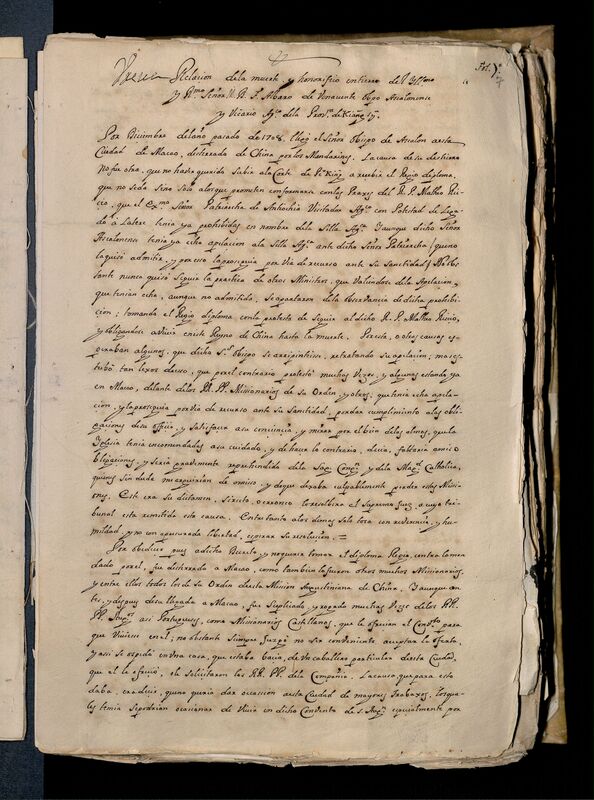 Fol. 7
Breve Relacion dela muerte, y honorifico entierro del Yllmo
Y Rmo Señor N. P. F. Albaro de Venavente Obpo Ascalonense
y Vicario Apco dela Provª de Kiang sy.
Por Diciembre del año pasado de 1708. llegó el Señor Obispo de Ascalon a esta
Ciudad de Macao, desterrado de China por los Mandarines. La causa de su destierro
no fue otra, que no haver querido subir ala Corte de Pe King a recebir el Regio diploma,
que no se da sino solo alos que prometen conformarse con las Praxes del R. P. Matheo Ric-
cio, que el Exmo Señor Patriarcha de Antiochia Visitador Apco con Potestad de Lega-
do à Latere tenia ya prohibidas en nombre dela Silla Apca. Y aunque dicho Señor
Ascalonense tenia ya echa apelacion ala Silla Apca ante dicho Señor Patriarcha (que no
la quiso admitir, y por eso la proseguia por via de recurso ante su Santidad) No obs-
tante nunca quiso seguir la practica de otros Ministros, que valiendose dela Apelacion,
que tenian echa, aunque no admitida, se apartaron dela observancia de dicha prohibi-
cion; tomando el Regio diploma con la protesta de seguir al dicho R. P. Matheo Riccio,
y obligandose a vivir en este Reyno de China hasta la muerte. Por esta, o otras causas es-
peraban algunos, que dicho Sr. obispo se arrepintiese, retratando su apelacion; mas es-
tubo tan lexos de eso, que por el contrario protestó muchas vezes, y algunas estando ya
en Macao, delante de los RR. PP. Missionarios de su Orden y otros, que tenia echa apela-
cion, y la proseguia por via de recurso ante su Santidad, por dar cumplimiento alas obli-
gaciones de su officio, y satisfacer a su conciencia, y mirar por el bien delas almas, que la
Iglesia tenia encomendadas a su cuidado, y de hacer lo contrario, decia, faltaria a mis o-
bligaciones, y seria gravemente reprehendido dela Sagr. Congn. y dela Magd. Catholica,
quienes sin duda me arguirian de omiso, y de que dexaba culpablemente perder estas Missio-
nes. Este era su dictamen. Si recto, o erroneo lo resolbera el Supremo Juez, a cuyo tri-
bunal esta remitida esta causa. Entre tanto alos demas solo toca con reverencia, y hu-
mildad, y no con apresurada libertad, esperar su resolucion. =
Por obedecer pues a dicho Decreto, y no querer tomar el diploma Regio, contra lo man-
dado por el, fue desterrado a Macao, como tambien lo fueron otros muchos Missionarios,
y entre ellos todos los de su Orden desta Mision Augustiniana de China. Y aunque an-
tes, y despues de su llegada a Macao, fue suplicado, y rogado muchas vezes delos RR.
PP. Augos asi Portugueses, como Missionarios Castellanos, que le ofrecian el Convto para
que viviese en el; no obstante siempre juzgó no ser conveniente aceptar la oferta.
Y assi se ospedó en una casa, que estaba bacia, de un caballero particular desta Ciudad,
que el le ofreció, ó le solicitaron los RR. PP. dela Compañia. La causa, que para esto
daba, era decir, que no queria dar occasion a esta Ciudad de mayores trabaxos, los qua-
les temia se podrian ocasionar de vivir en dicho Convento de S. Augn. especialmente por